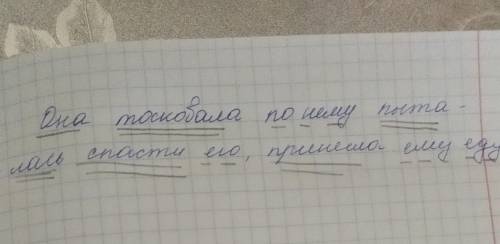 Она тосковала по нему пыта-
лась спасти его, принесла ему еду